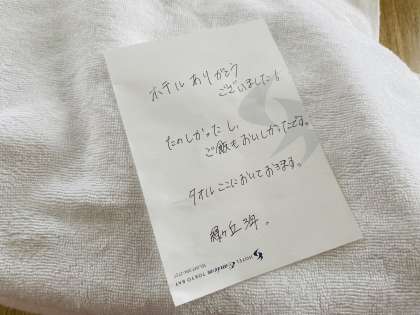 ホテル ありがとう
ございました！
たのしかったし、
ご飯もおいしかったです。
タオルここにおいておきます。
緑ヶ丘
HOTEL TOKYO BAY